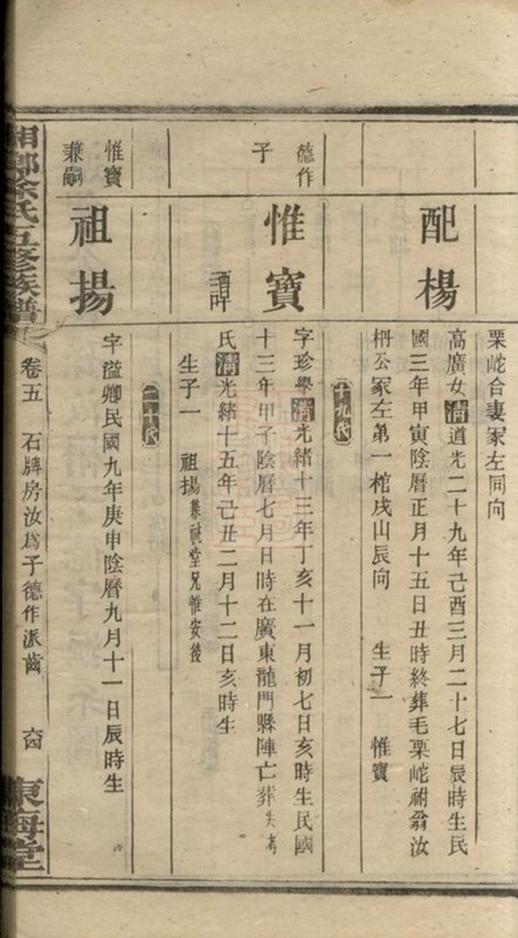 栗岮合妻冢左同向
配楊
高廣女清道光二十九年己酉三月二十七日辰時生民
國三年甲寅陰曆正月十五日丑時終葬毛栗岮祔翁汝
枬公冢左第一棺戌山辰向 生子一 惟寶
十九代
德作
子
惟寶
字珍學清光緒十三年丁亥十一月初七日亥時生民國
十三年甲子陰曆七月日時在廣東龍門縣陣亡葬失考
譚
氏清光緒十五年己丑二月十二日亥時生
生子一 祖揚兼祧堂兄惟安後
二十代
惟寶
兼嗣
祖揚
字溢卿民國九年庚申陰曆九月十一日辰時生
湘鄉徐氏五修族譜
卷五 石牌房汝為子德作派齒
東海堂